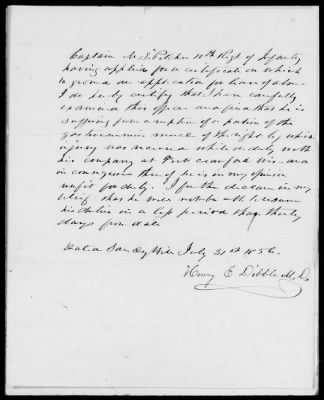 Captain M. E. Pitcher 10th Regt of Infantry
having applied for a certificate on which
to ground an application for leave of absence
I do hereby certify that I have carefully
examined this officer and find that he is
suffering from a rupture of a portion of the
gastrocnemius muscle of the right leg which
injury was received while on duty with
his company at Fort Crawford Wis. and
in consequence thereof he is in my opinion
unfit for duty. I further declare in my
belief that he will not be able to resume
his duties in a less period than thirty
days from date
Sandy Hill July 31st 1856.
Henry E Dibble M.D.